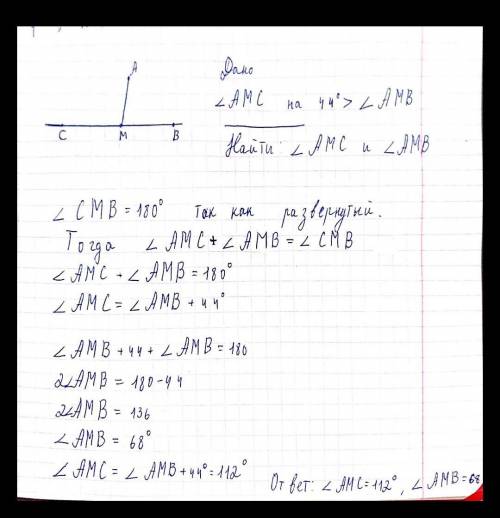 A
C M B
Дано
∠AMC на 44° > ∠AMB
Найти: ∠AMC и ∠AMB
∠CMB = 180° так как развернутый.
Тогда ∠AMC + ∠AMB = ∠CMB
∠AMC + ∠AMB = 180°
∠AMC = ∠AMB + 44°
∠AMB + 44 + ∠AMB = 180
2∠AMB = 180 - 44
2∠AMB = 136
∠AMB = 68°
∠AMC = ∠AMB + 44° = 112°
Ответ: ∠AMC = 112°, ∠AMB = 68